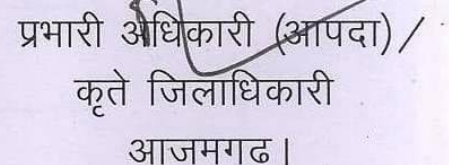 प्रभारी अधिकारी (आपदा) /
कृते जिलाधिकारी
आजमगढ।